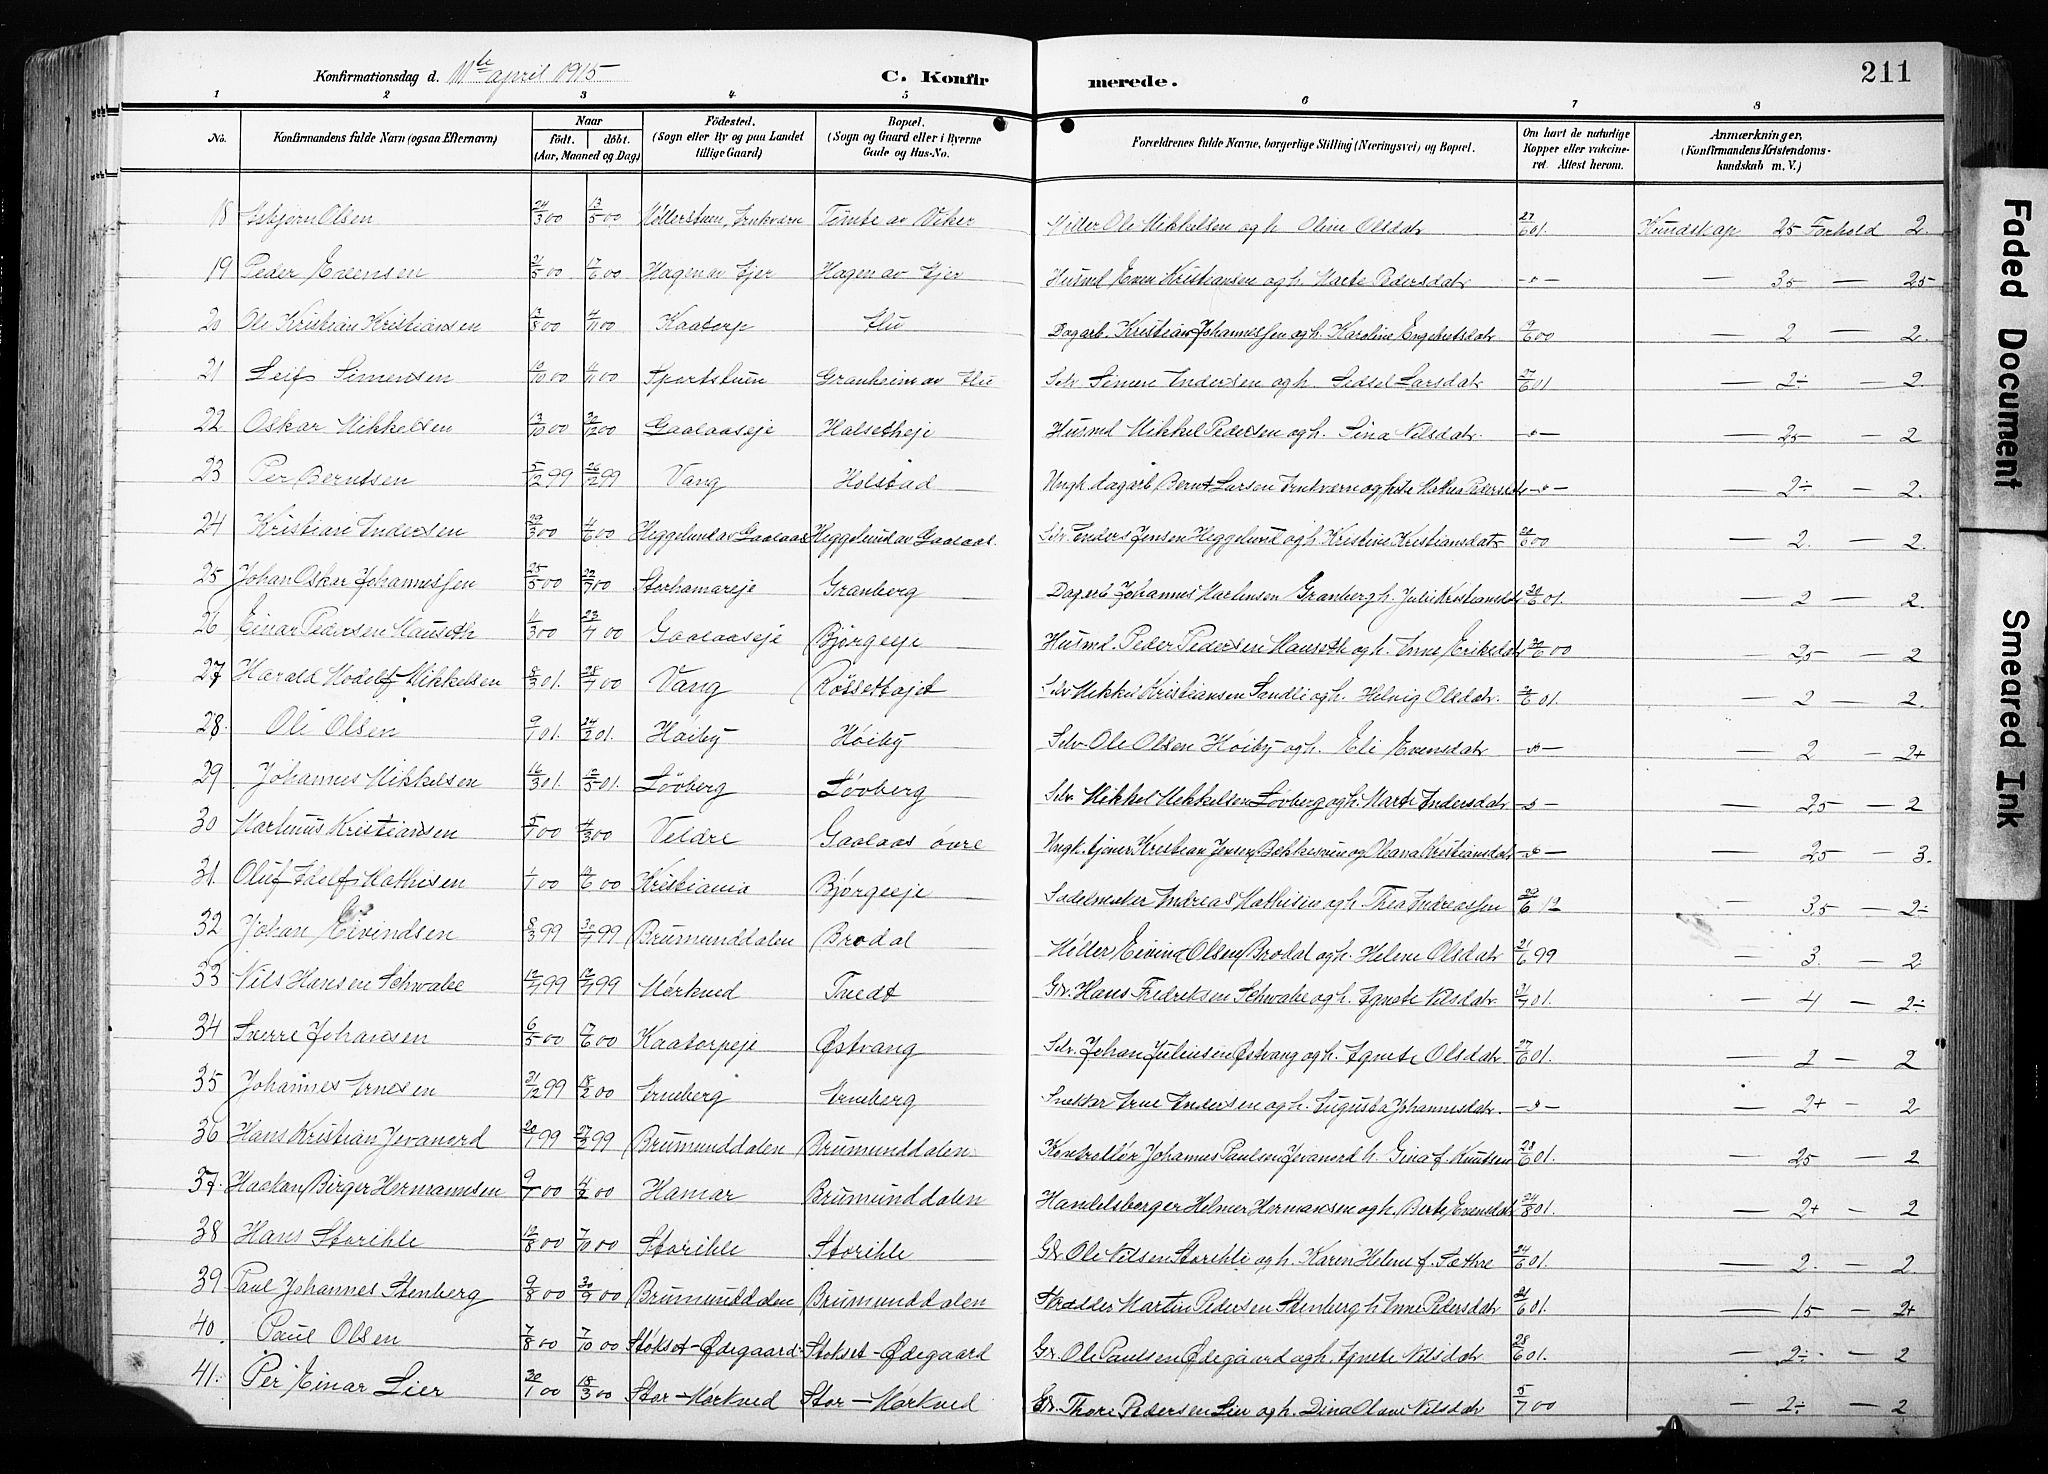 Konfirmationsdag d. 11te april 1915 C. Konfirmerede. 211
1 2 3 4 5 6 7 8
No. Konfirmandens fulde Navn (ogsaa Efternavn) Naar födt. döbt. (Aar, Maaned og Dag) Födested. (Sogn eller By og paa Landet tillige Gaard) Bopæl. (Sogn og Gaard eller i Byerne Gade og Hus-No. Forældrenes fulde Navne, borgerlige Stilling (Næringsvei) og Bopæl. Om havt de naturlige Kopper eller vakcineret. Attest herom. Anmærkninger, (Konfirmandens Kristendomskundskab m. V.)
18 Asbjørn Olsen 24/3 00 13/5 00 Møllerstuen, Arnkværn Tomte av Viker Møller Ole Mikkelsen og h. Oline Olsdatr 27/6 01. Kundskap 25 Forhold 2
19 Peder Evensen 21/5 00 17/6 00 Hagen av Ejer Hagen av Ejer Husmd Even Kristiansen og h. Marte Pedersdatr -"- — 35 — 25
20 Ole Kristian Kristiansen 4/11 00 Kaatorp Alu Dagarb. Kristian Johannessen og h. Karoline Engebretsdatr 9/6 00 — 2 — 2.
21 Leif Simensen 10/10 00 4/11 00 Sportstuen Granheim av Alu Selv. Simen Andersen og h. Sidsel Larsdatr 27/6 01 — 2÷ — 2.
22 Oskar Mikkelsen 13/10 00 30/12 00 Gaalaaseje Halsetheje Husmd Mikkel Pedersen og h. Sina Nilsdatr. -"- — 25 — 2
23 Per Berntsen 5/12 99 26/12 99 Vang Holstad Ungk. dagarb Bernt Larsen Arnkværn og Pedersdtr -"- — 2÷ — 2.
24 Kristian Andersen 29/3 00 4/6 00 Heggelund av Gaalaas Heggelund av Gaalaas. Selv. Anders Jensen Heggelund og h. Kristine Kristiansdatr 00 — 2. — 2.
25 Johan Oskar Johannessen 25/5 00 22/7 00 Storhamareje Granberg Dagarb Johannes Martinsen Granberg h. Julie Kristiansdtr 01. — 2 — 2.
26 Einar Pedersen Hauseth 11/3 00 23/7 00 Gaalaaseje Bjørgeeje Husmd. Peder Pedersen Hauseth og h. Anne Eriksdatr 00 — 25 — 2
27 Harald Hodolf Mikkelsen 8/3 01. 28/7 00 Vang Røssettøjet Selv Mikkel Kristiansen Sandli og h. Helvig Olsdatr. 01. — 2 — 2.
28. Ole Olsen 9/1 01. 24/2 01. Høiby Høiby Selv Ole Olsen Høiby og h. Eli Evensdatr -"- — 2 — 2+
29 Johannes Mikkelsen 16/3 01. 01. Løvberg Løvberg Selv. Mikkel Mikkelsen Løvberg og h. Marte Andersdatr -"- — 25 — 2
30 Martinus Kristiansen 5/1 00 4/3 00 Veldre Gaalaas øvre Ungk. tjener Kristian Jensen og Oleana Kristiansdatr -"- — 25 — 3.
31. Oluf Adolf Mathisen 1/1 00 00 Kristiania Bjørgeeje Sadelmaker Andreas Mathisen og h. Thea Andreassen 29/6 12 — 35 — 2÷
32 Johan Eivindsen 8/3 99 30/7 99 Brumunddalen Brodal Møller Eivind Olsen Brodal og h. Helene Olsdatr 21/6 99 — 3. — 2
33 Nils Hansen Schwabe 99 99 Mørkved Tuedt Gbr. Hans Fredriksen Schwabe og h. Agnete Nilsdatr 01. — 4 — 2÷
34 Sverre Johansen 6/5 00 00 Kaatorpeje Østvang Selv. Johan Juliusen Østvang og h. Agnete Olsdatr 27/6 01. — 2 — 2
35 Johannes Arnesen 21/12 99 18/2 00 Arneberg Arneberg Snekker Arne Andersen og h. Augusta Johannesdatr. -"- — 2+ — 2
36 Hans Kristian Jevanord 20/1 99 99 Brumunddalen Brumunddalen Kontrollør Johannes Paulsen Jevanord h. Gina f. Knutsen 28/6 01. — 25 — 2
37. Haakon Birger Hermannsen 9/1 00 4/2 00 Hamar Brumunddalen Handelsborger Helmer Hermansen og h. Berte Evensdatr 24/8 01. — 2+ — 2
38 Hans Storihle 12/8 00 7/10 00 Storihle Storihle Gbr. Ole Nilsen Storihle og h. Karen Helene f. Sæthre 24/6 01. — 2. — 2.
39 Paul Johannes Stenberg 9/8 00 30/9 00 Brumunddalen Brumunddalen Skrædder Martin Pedersen Stenberg h. Anne Pedersdatr 21/6 01. — 15 — 2+
40. Paul Olsen 7/8 00 7/10 00 Stokset-Ødegaard Stokset-Ødegaard Gbr. Ole Paulsen Ødegaard og h. Agnete Nilsdatr 28/6 01. — 2÷ — 2
41. Per Einar Lier 20/1 00 18/3 00 Stor-Mørkved Stor-Mørkved Gbr. Thore Pedersen Lier og h. Dina Olave Nilsdatr 5/7 00 — 2÷ — 2
Faded Document
Smeared Ink